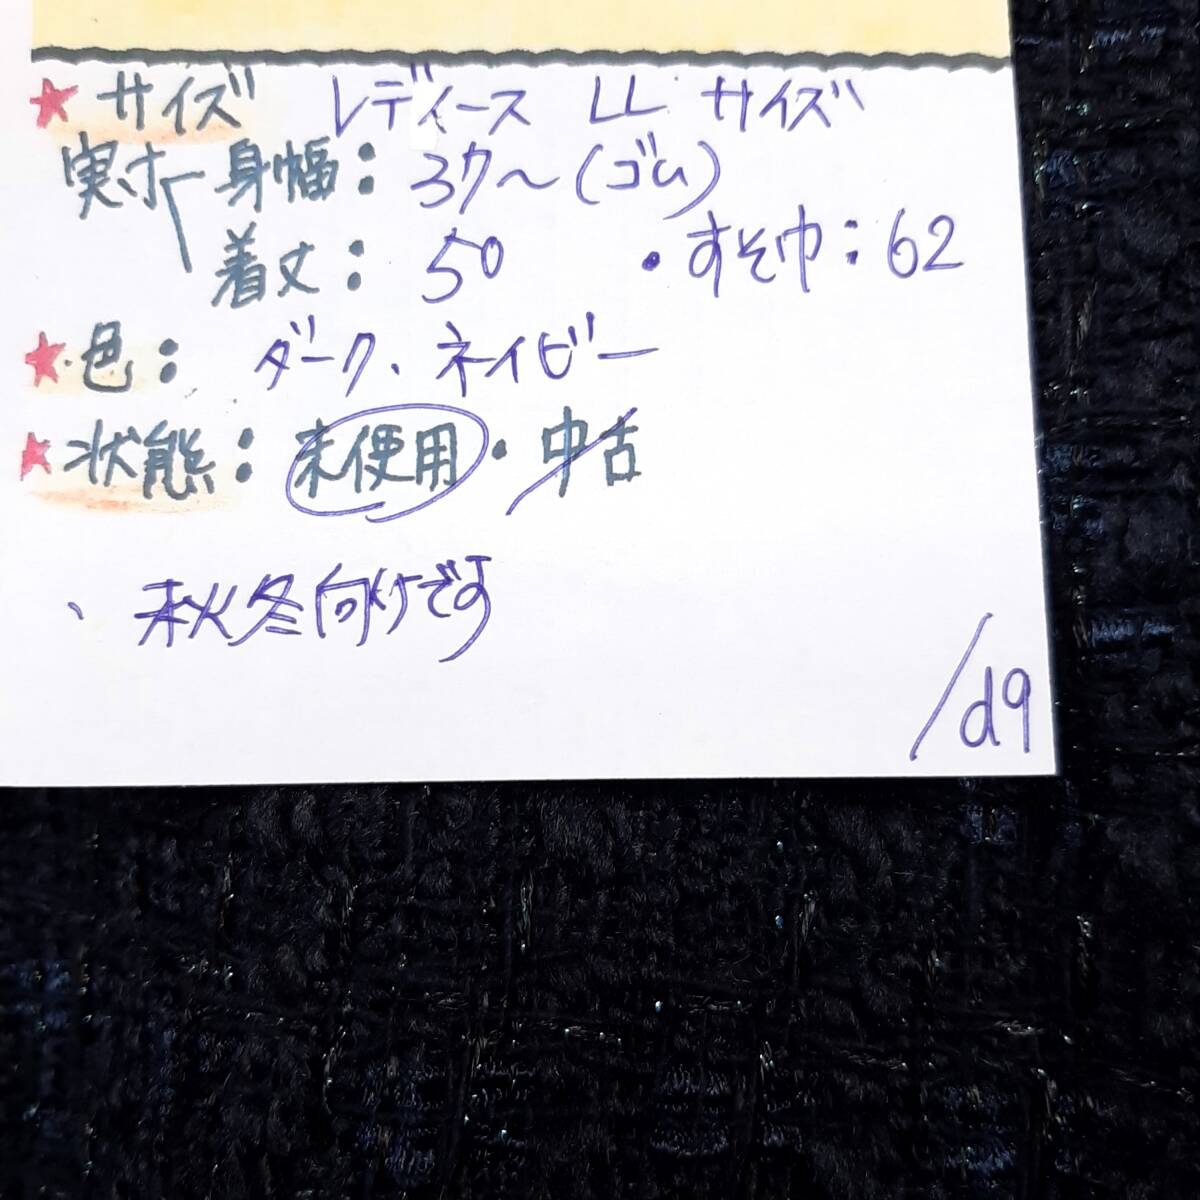 ★サイズ レディース LLサイズ
実寸 身幅：37〜(ゴム)
着丈：50 ・すそ巾：62
★色：ダーク、ネイビー
★状態：未使用・中古
、秋冬向けです
/d9